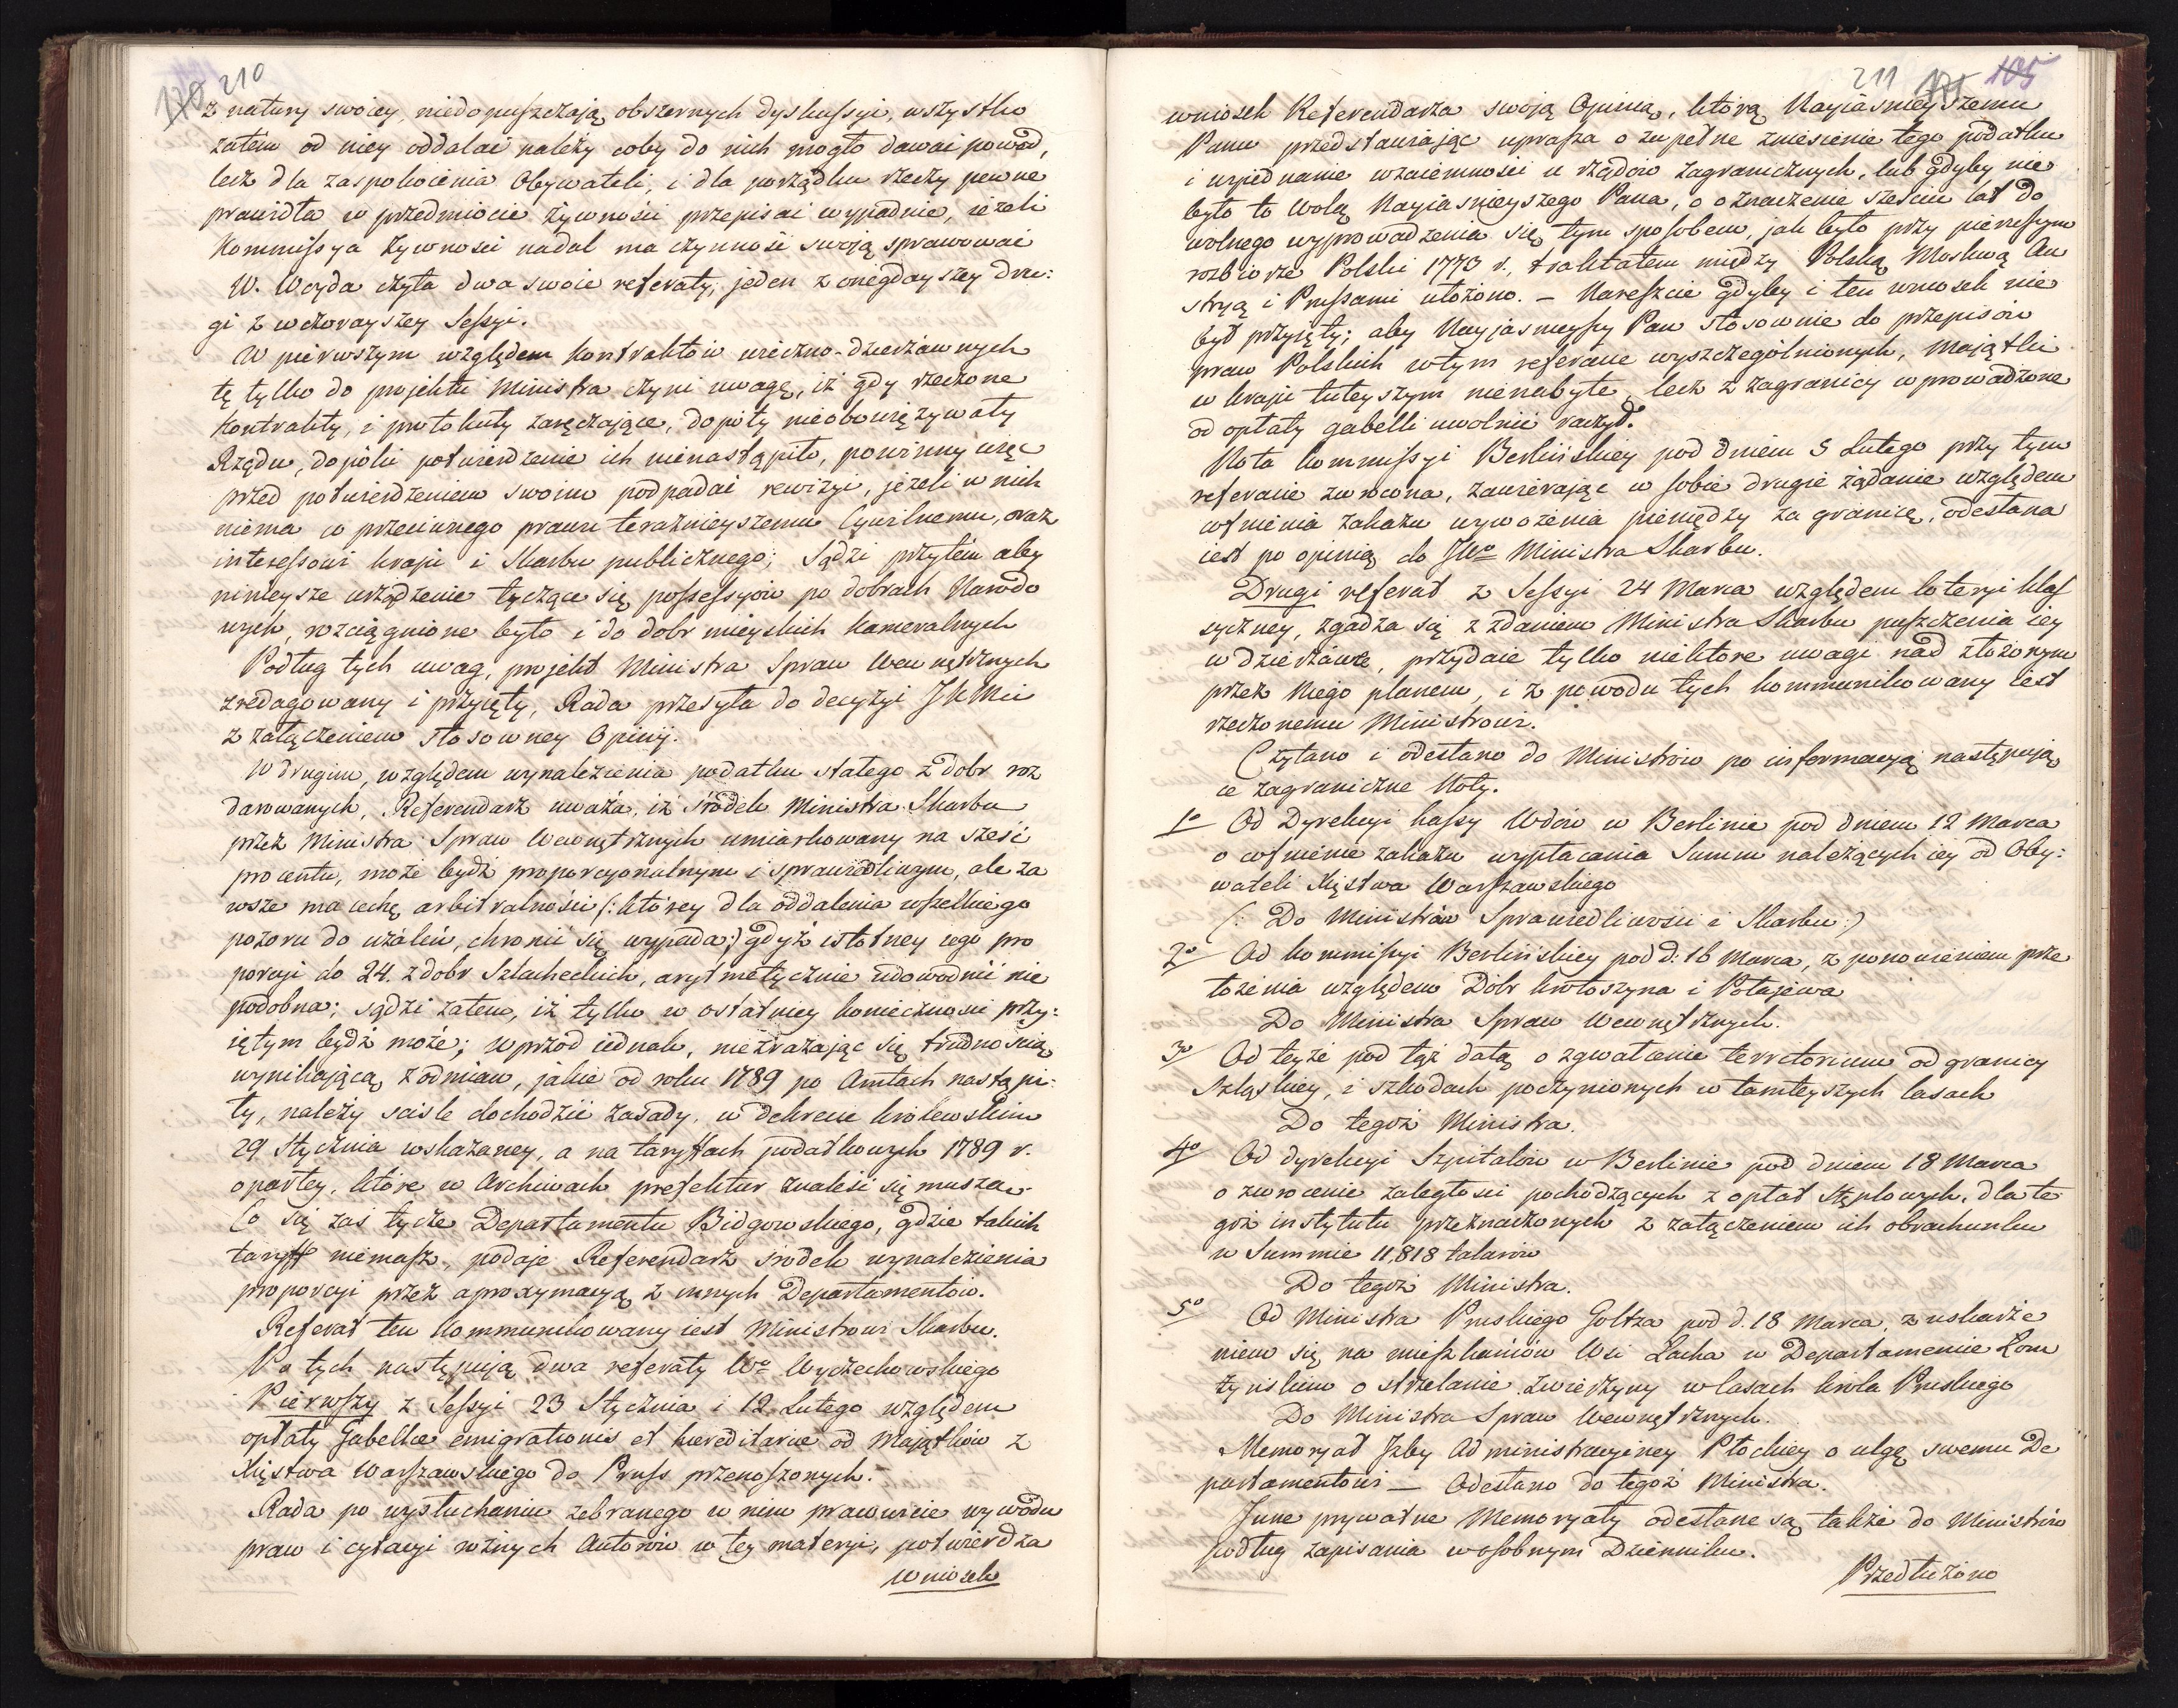 170 210
z natury swoiey, niedopuszczaią obszernych dyskussyi, wszystko
zatem od niey oddalać należy coby do nich mogło dawać powód,
lecz dla zaspokoienia Obywateli, i dla porządku rzeczy pewne
prawidła w przedmiocie żywności przepisać wypadnie, ieżeli
Kommissya żywności nadal ma czynność swoją sprawować
W. Woyda czyta dwa swoie referaty, jeden z onegdayszey dru:
gi z wczorayszey Sessyi.
W pierwszym względem kontraktów wieczno-dzierżawnych
tę tylko do projektu Ministra czyni uwagę, iż gdy rzeczone
kontrakty, i protokuły zaręczające, dopóty nieobowięzywały
Rządu, dopóki potwierdzenie ich nienastąpiło, powinny więc
przed potwierdzeniem swoim podpadać rewizyi, jeżeli w nich
niema co przeciwnego prawu teraźnieyszemu Cywilnemu, oraz
interessowi kraju i Skarbu publicznego; Sądzi przytém aby
ninieysze urządzenie tyczące się possessyów po dobrach Narodo
wych, rozciągnione było i do dobr mieyskich kameralnych
Podług tych uwag, projekt Ministra Spraw Wewnętrznych
zredagowany i przyięty, Rada przesyła do decyzyi JKMci
z załączeniem stosowney Opinij.
W drugim, względem wynalezienia podatku stałego z dobr roz
darowanych, Referendarz uważa, iż śrŏdek Ministra Skarbu
przez Ministra Spraw Wewnętrznych umiarkowany na sześć
procentu, może bydź proporcyonalnym i sprawiedliwym, ale za
wsze ma cechę arbitralności (: którey dla oddalenia wszelkiego
pozoru do użaleń, chronić się wypada;) gdyż istotney iego pro
porcyi do 24. z dobr Szlacheckich, arytmetycznie udowodnić nie
podobna; sądzi zatem, iż tylko w ostatniey konieczności przy:
iętym bydź może; wprzód iednak, niezrażając się trudnością
wynikającą z odmian, jakie od roku 1789 po Amtach nastąpi:
ły, należy scisle dochodzić zasady, w dekrecie królewskim
29 Stycznia wskazaney, a na taryffach podatkowych 1789 r.
opartey, które w Archiwach prefektur znaleść się muszą.
Co się zaś tycze Departamentu Bidgowskiego, gdzie takich
taryff niemasz, podaje Referendarz środek wynalezienia
proporcyi przez aproxymacyą z innych Departamentów.
Referat ten kommunikowany iest Ministrowi Skarbu.
Po tych następują dwa referaty Wo Wyczechowskiego
Pierwszy z Sessyi 23 Stycznia i 12 Lutego względem
opłaty Gabellae emigrationis et hereditariae od Majątków z
Xięstwa Warszawskiego do Pruss przenoszonych.
Rada po wysłuchaniu zebranego w nim prawnicie wywodu
praw i cytacyi rożnych Autorów w tey materyi, potwierdza
wniosek
211 171 105
wniosek Referendarza swoją Opinią, którą Nayiasnieyszemu
Panu przedstawiając uprasza o zupełne zniesienie tego podatku
i ujednanie wzaiemności u rządów zagranicznych, lub gdyby nie
było to wolą Nayiasnieyszego Pana, o oznaczenie sześciu lat do
wolnego wyprowadzenia się, tym sposobem, jak było przy pierwszym
rozbiorze Polski 1773 r., traktatem między Polską Moskwą Au
stryą i Prussami ułożono. – Nareszcie gdyby i ten wniosek nie
był przyięty; aby Nayjasnieyszy Pan stosownie do przepisów
praw Polskich w tym referacie wyszczególnionych, Majątki
w kraju tuteyszym nienabyte, lecz z zagranicy wprowadzone
od opłaty gabelli uwolnić raczył.
Nota kommissyi Berlińskiey pod dniem 5 Lutego przy tym
referacie zwrocona, zawierając w sobie drugie żądanie względem
cofnienia zakazu wywożenia pieniędzy za granicę, odesłana
iest po opinią do JWo Ministra Skarbu.
Drugi referat z Sessyi 24 Marca względem loteryi klas
syczney, zgadza się z zdaniem Ministra Skarbu puszczenia iey
w dzierżawę, przydaie tylko niektore uwagi nad złożonym
przez Niego planem, i z powodu tych kommunikowany iest
rzeczonemu Ministrowi.
Czytano i odesłano do Ministrów po informacyą następują
ce zagraniczne Noty.
1o Od Dyrekcyi kassy Wdów w Berlinie pod dniem 12 Marca
o cofnienie zakazu wypłacania Summ należących iey od Oby:
wateli Xięstwa Warszawskiego
(: Do Ministrów Sprawiedliwości i Skarbu :)
2o Od kommissyi Berlińskiey pod d: 16 Marca, z ponowieniem prze
łożenia względem Dóbr krotoszyna i Potajewa
Do Ministra Spraw Wewnętrznych.
3o Od teyże pod tąż datą o zgwałcenie territorium od granicy
Szląskiey, i szkodach poczynionych w tamteyszych lasach
Do tegoż Ministra.
4o Od dyrekcyi Szpitalów w Berlinie pod dniem 18 Marca
o zwrocenie zaległości pochodzących z opłat stęplowych, dla te
goż instytutu przeznaczonych z załączeniem ich obrachunku
w Summie 11,818 talarów
Do tegoż Ministra.
5o Od Ministra Pruskiego Goltza pod d. 18 Marca, z uskarże
niem się na mieszkańców Wsi Lacha w Departamencie Łom
żyńskim o strzelanie zwierzyny w lasach króla Pruskiego
Do Ministra Spraw Wewnętrznych.
Memoryał Izby Administracyiney Płockiey o ulgę swemu De
partamentowi – Odesłano do tegoż Ministra.
Inne prywatne Memoryały odesłane są także do Ministrów
podług zapisania w osobnym Dzienniku.
Przedłużono